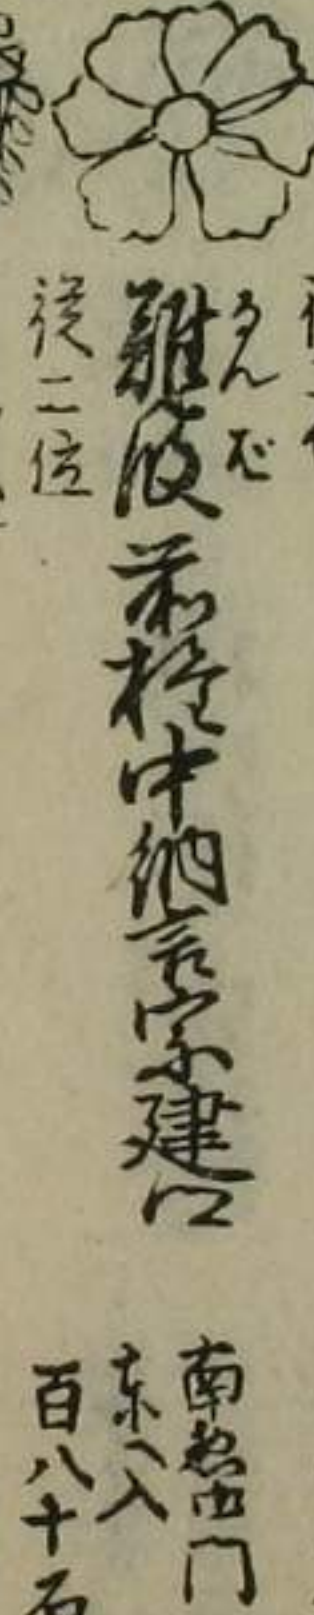 なんば
難波前権中納言宗建卿
従二位
南惣門
東へ入
百八十石